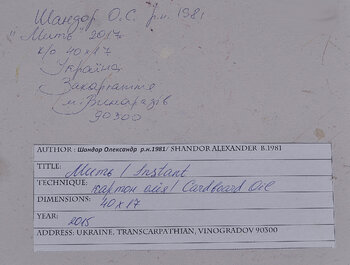 Шандор О.С. р.н. 1981
"Мить" 2017
к/о 40x17
Україна
Закарпаття
м. Виноградів
90300
AUTHOR - Шандор Олександр р.н.1981/ SHANDOR ALEXANDER B.1981
TITLE: Мить / Instant
TECHNIQUE: картон олія / Cardboard Oil
DIMENSIONS: 40x17
YEAR: 2015
ADDRESS: UKRAINE, TRANSCARPATHIAN, VINOGRADOV 90300